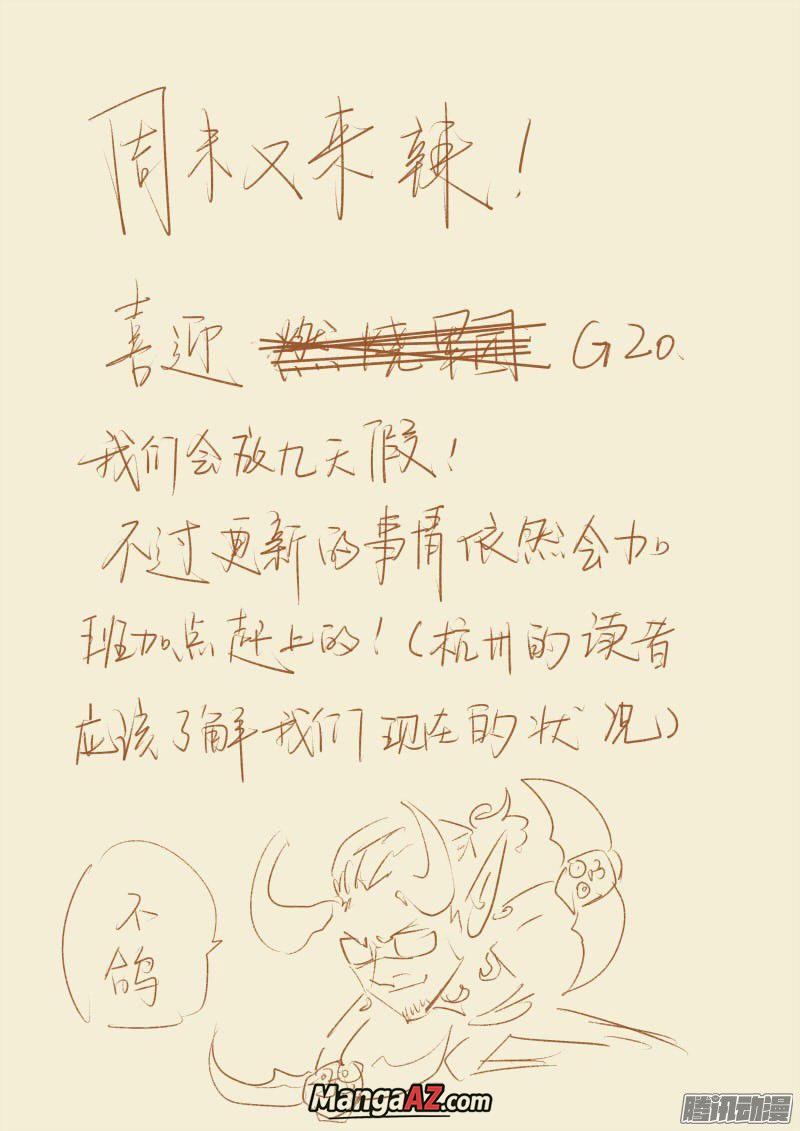 周末又来辣！
喜迎 燃烧军团 G20、
我们会放九天假！
不过更新的事情依然会加
班加点赶上的！（杭州的读者
应该了解我们现在的状况）
不
鸽
MangaAZ.com
腾讯动漫